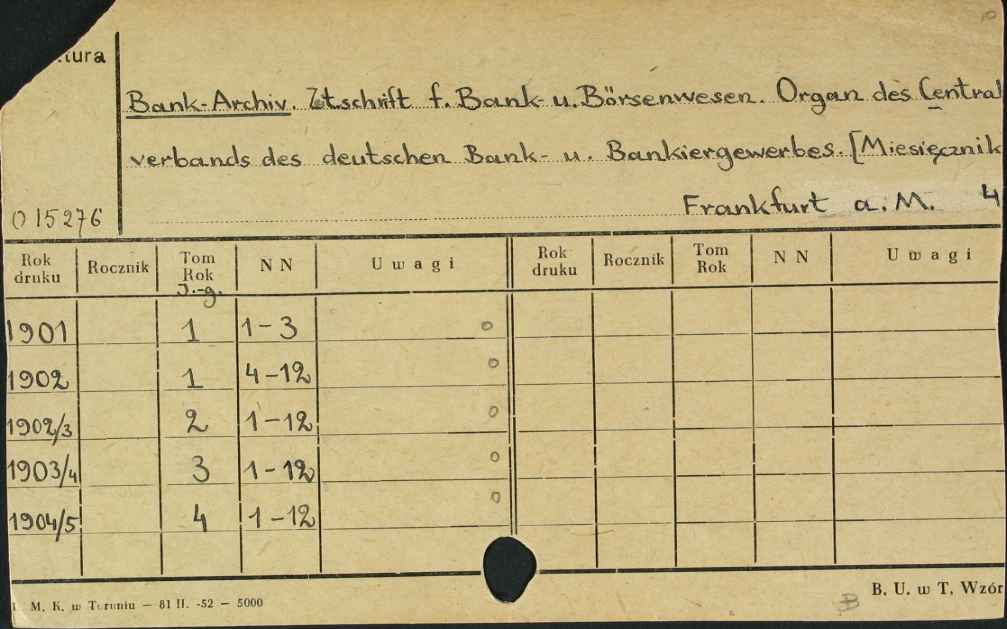 Bank-Archiv. Ztschrift f. Bank- u. Börsenwesen. Organ des Central
verbands des deutschen Bank- u. Bankiergewerbes. [Miesięcznik
O 15276 Frankfurt a. M. 4
Rok druku Rocznik Tom Rok J.-g. N N Uwagi Rok druku Rocznik Tom Rok N N Uwagi
1901 1 1-3 o
1902 1 4-12 o
1902/3 2 1-12 o
1903/4 3 1-12 o
1904/5 4 1-12 o
M. K. w Toruniu — 81 II. -52 — 5000 B. U. w T. Wzór
B